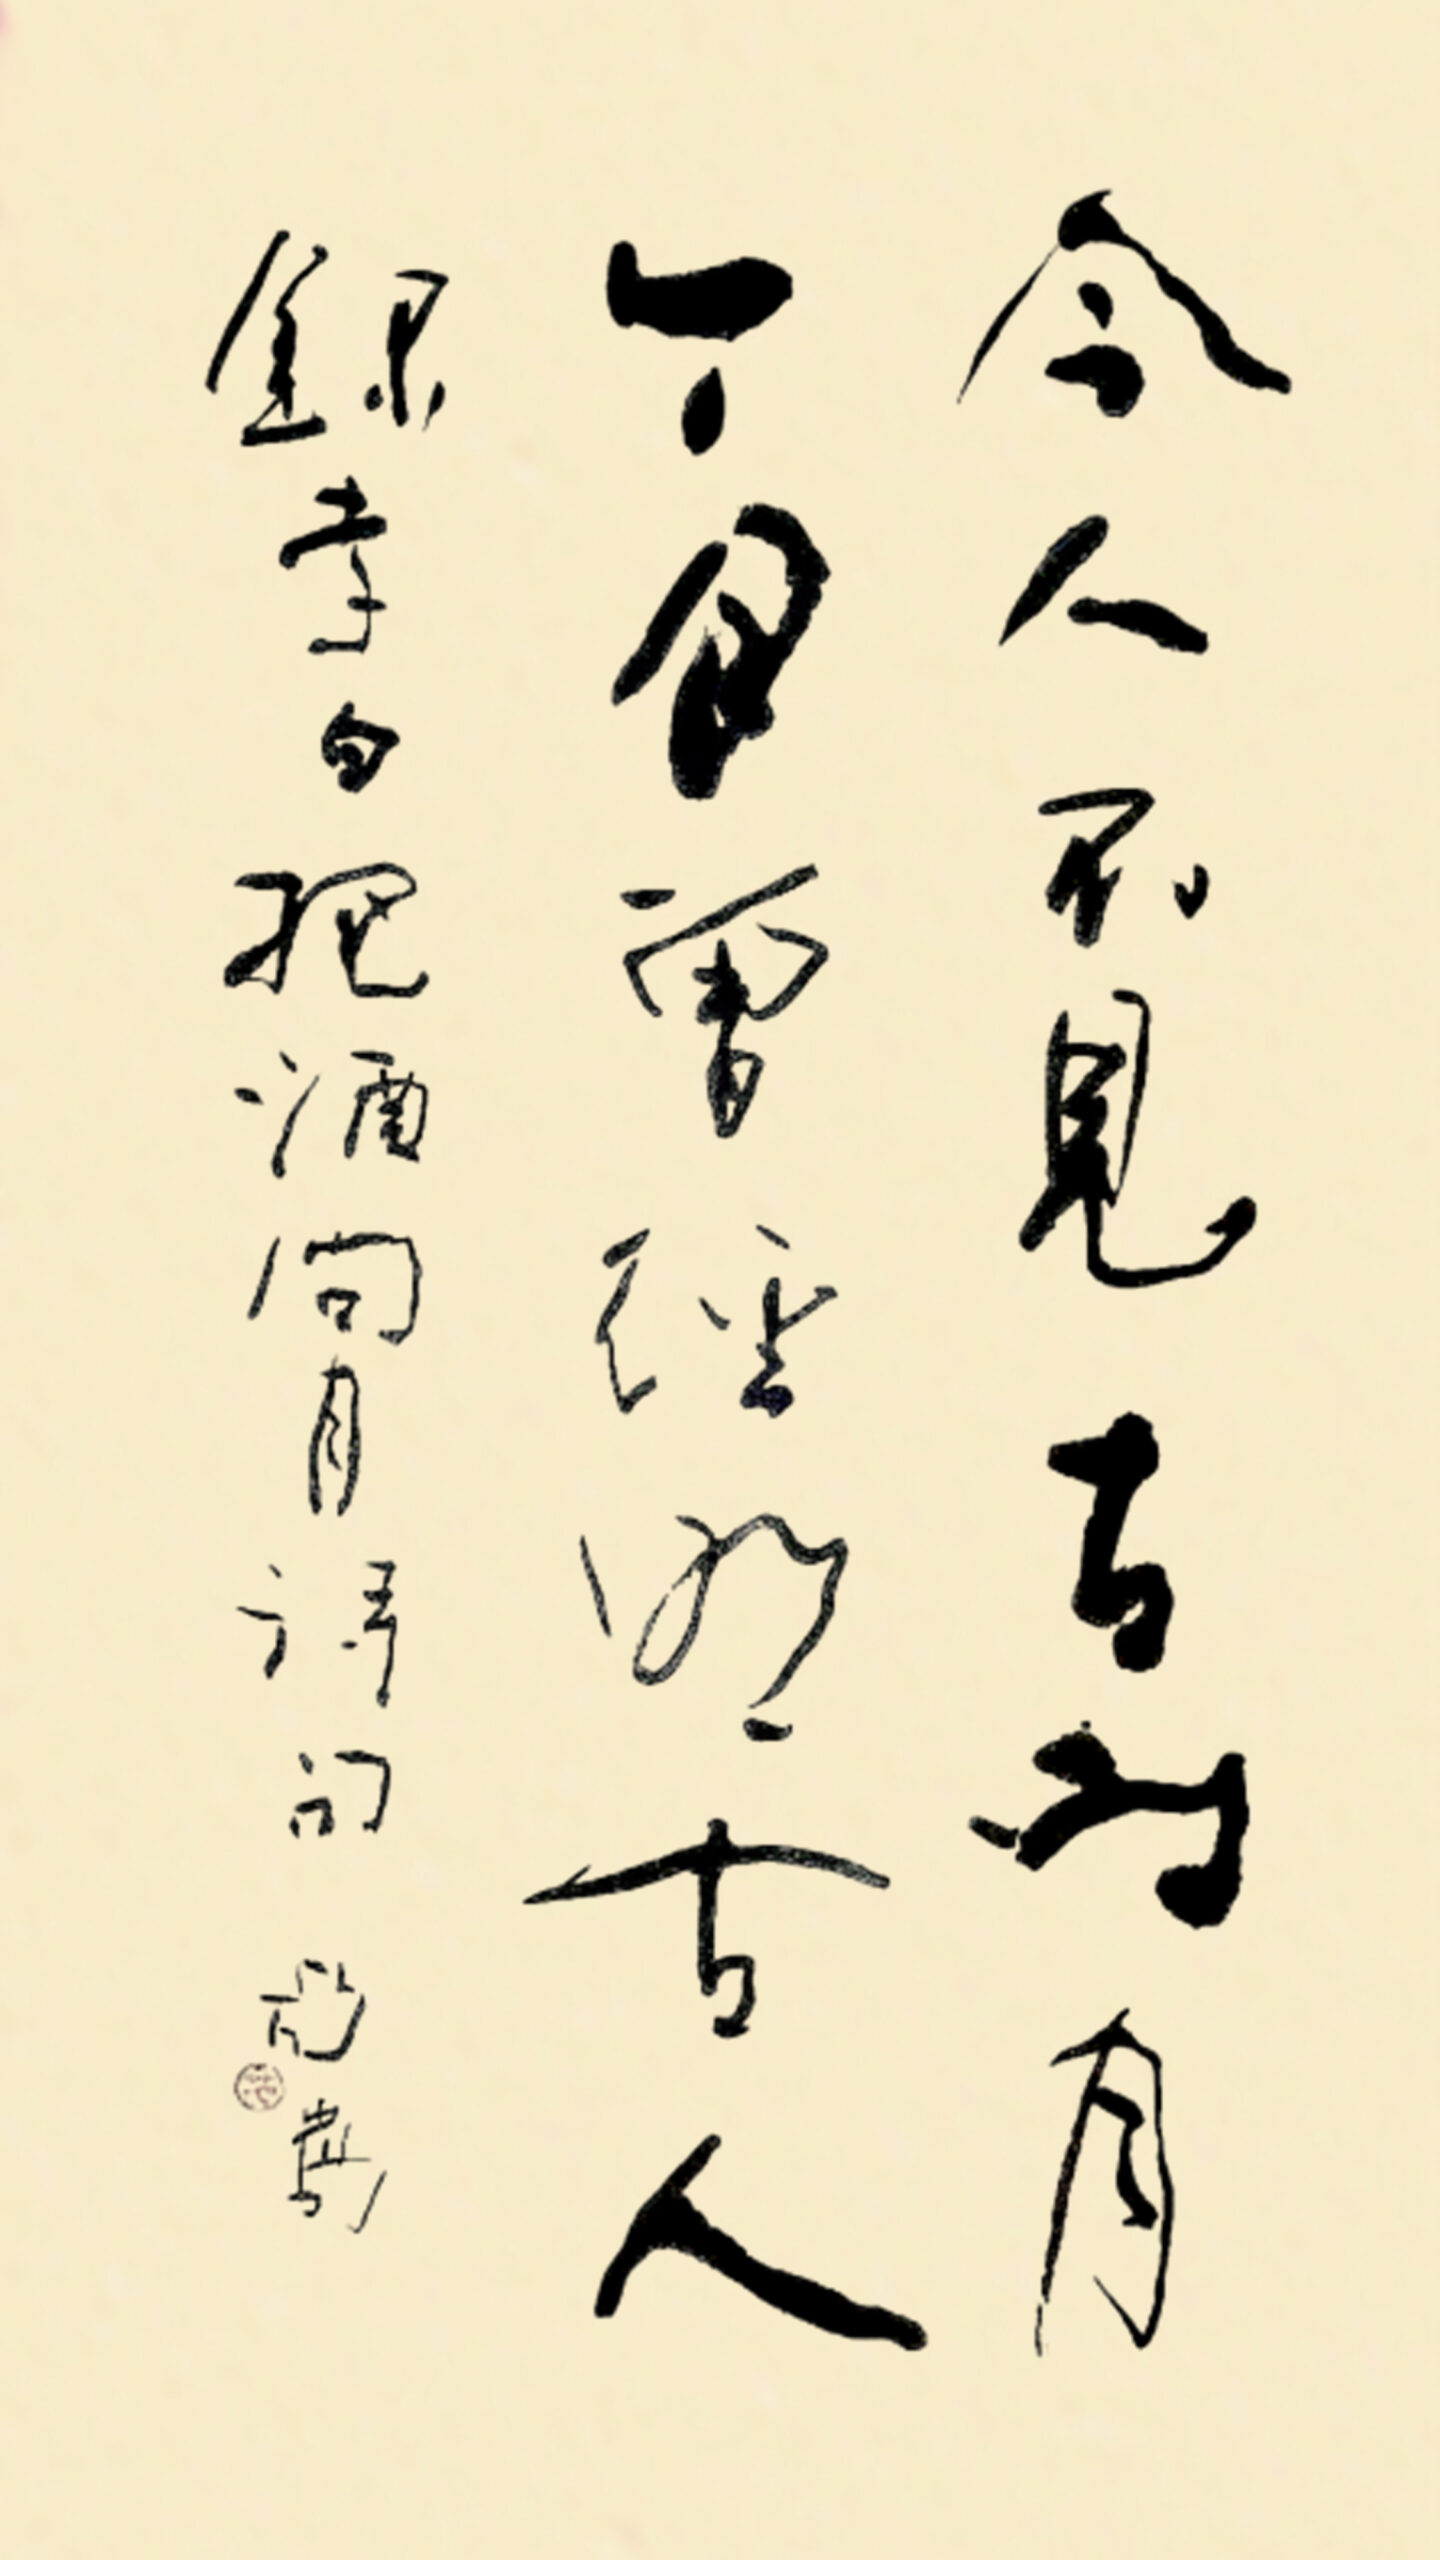 今人不見古時月
今月曾經照古人
錄李白把酒問月詩句